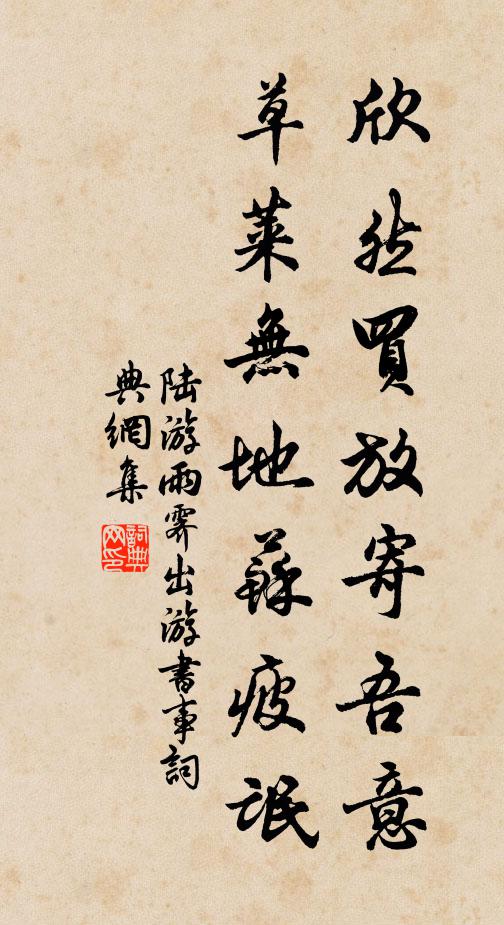 欣然買放寄吾意
草萊無地蘇疲氓
陸游雨霽出游書事詞
典網集
詞典網印